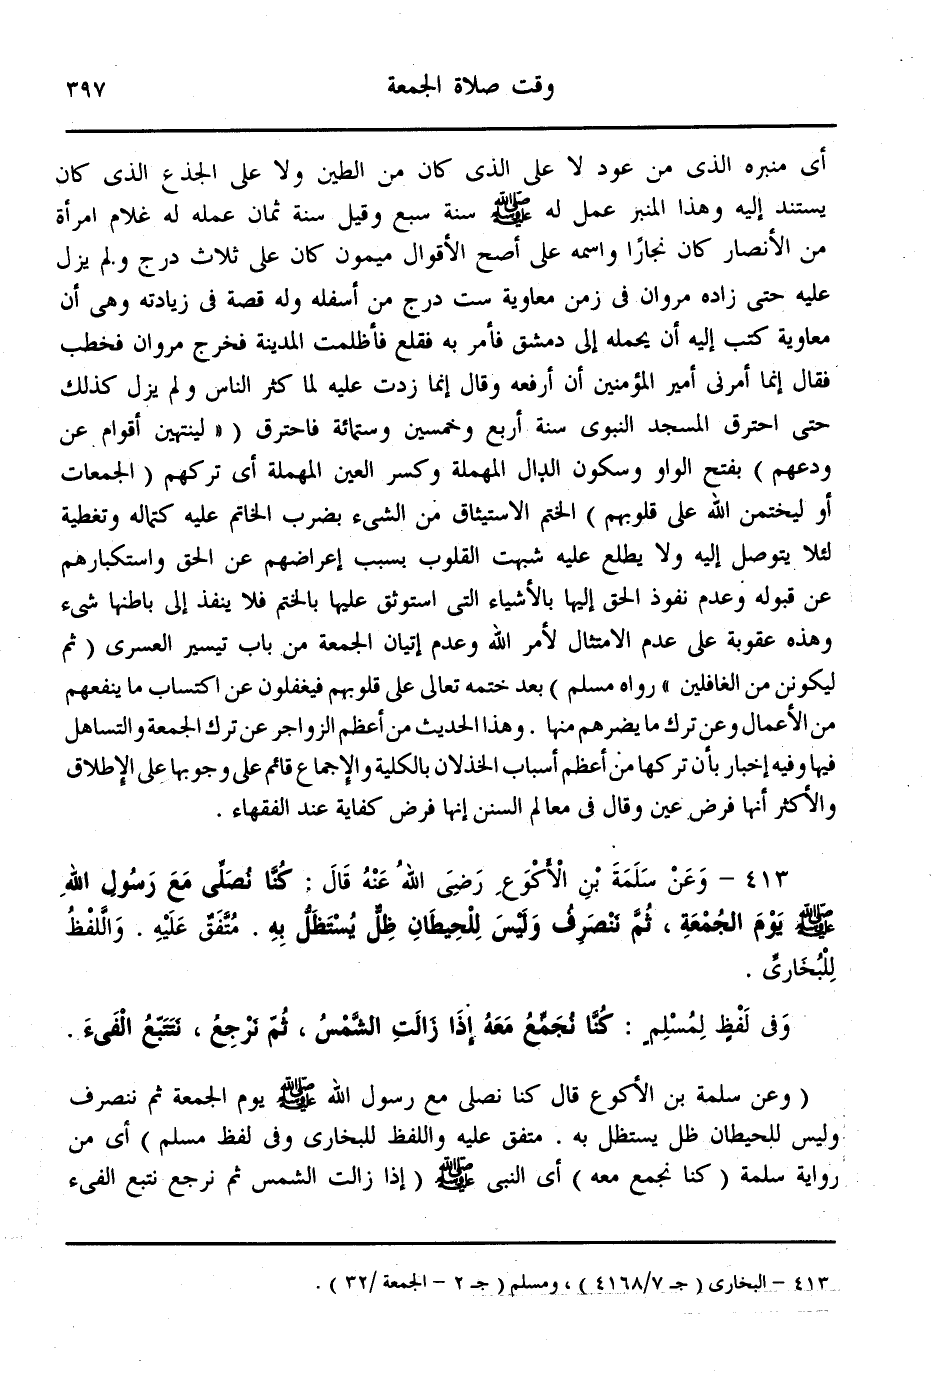 وقت صلاة الجمعة ٣٩٧
أى منبره الذى من عود لا على الذى كان من الطين ولا على الجذع الذى كان
يستند إليه وهذا المنبر عمل له ﷺ سنة سبع وقيل سنة ثمان عمله له غلام امرأة
من الأنصار كان نجارًا واسمه على أصح الأقوال ميمون كان على ثلاث درج ولم يزل
عليه حتى زاده مروان فى زمن معاوية ست درج من أسفله وله قصة فى زيادته وهى أن
معاوية كتب إليه أن يحمله إلى دمشق فأمر به فقلع فأظلمت المدينة فخرج مروان فخطب
فقال إنما أمرنى أمير المؤمنين أن أرفعه وقال إنما زدت عليه لما كثر الناس ولم يزل كذلك
حتى احترق المسجد النبوى سنة أربع وخمسين وستمائة فاحترق ( « لينتهين أقوام عن
ودعهم ) بفتح الواو وسكون الدال المهملة وكسر العين المهملة أى تركهم ( الجمعات
أو ليختمن الله على قلوبهم ) الختم الاستيثاق من الشىء بضرب الخاتم عليه كتماله وتغطية
لئلا يتوصل إليه ولا يطلع عليه شبهت القلوب بسبب إعراضهم عن الحق واستكبارهم
عن قبوله وعدم نفوذ الحق إليها بالأشياء التى استوثق عليها بالختم فلا ينفذ إلى باطنها شىء
وهذه عقوبة على عدم الامتثال لأمر الله وعدم إتيان الجمعة من باب تيسير العسرى ( ثم
ليكونن من الغافلين » رواه مسلم ) بعد ختمه تعالى على قلوبهم فيغفلون عن اكتساب ما ينفعهم
من الأعمال وعن ترك ما يضرهم منها . وهذا الحديث من أعظم الزواجر عن ترك الجمعة والتساهل
فيها وفيه إخبار بأن تركها من أعظم أسباب الخذلان بالكلية والإجماع قائم على وجوبها على الإطلاق
والأكثر أنها فرض عين وقال فى معالم السنن إنها فرض كفاية عند الفقهاء .
٤١٣ – وَعَنْ سَلَمَةَ بْنِ الْأَكْوَعِ رَضِىَ اللهُ عَنْهُ قَالَ : كُنَّا نُصَلِّى مَعَ رَسُولِ اللهِ
ﷺ يَوْمَ الجُمْعَةِ ، ثُمَّ نَنْصَرِفُ وَلَيْسَ لِلْحِيطَانِ ظِلٌّ يُسْتَظَلُّ بِهِ . مُتَّفَقٌ عَلَيْهِ . وَاللَّفْظُ
لِلْبُخَارِىِّ .
وَفى لَفْظٍ لِمُسْلِمٍ : كُنَّا نُجَمِّعُ مَعَهُ إِذَا زَالَتِ الشَّمْسُ ، ثُمّ نَرْجِعُ ، نَتَتَبّعُ الْفَىءَ .
( وعن سلمة بن الأكوع قال كنا نصلى مع رسول الله ﷺ يوم الجمعة ثم ننصرف
وليس للحيطان ظل يستظل به . متفق عليه واللفظ للبخارى وفى لفظ مسلم ) أى من
رواية سلمة ( كنا نجمع معه ) أى النبى ﷺ ( إذا زالت الشمس ثم نرجع نتبع الفىء
٤١٣ – البخارى ( جـ ٤١٦٨/٧ ) ، ومسلم ( جـ ٢ – الجمعة /٣٢ ) .